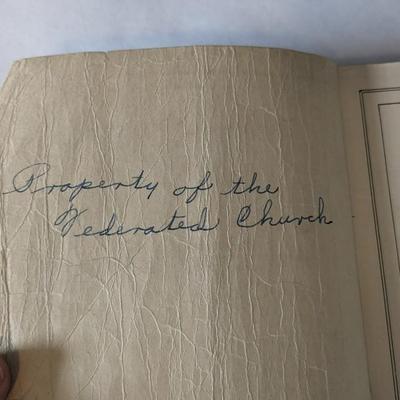 Property of the
Federated Church